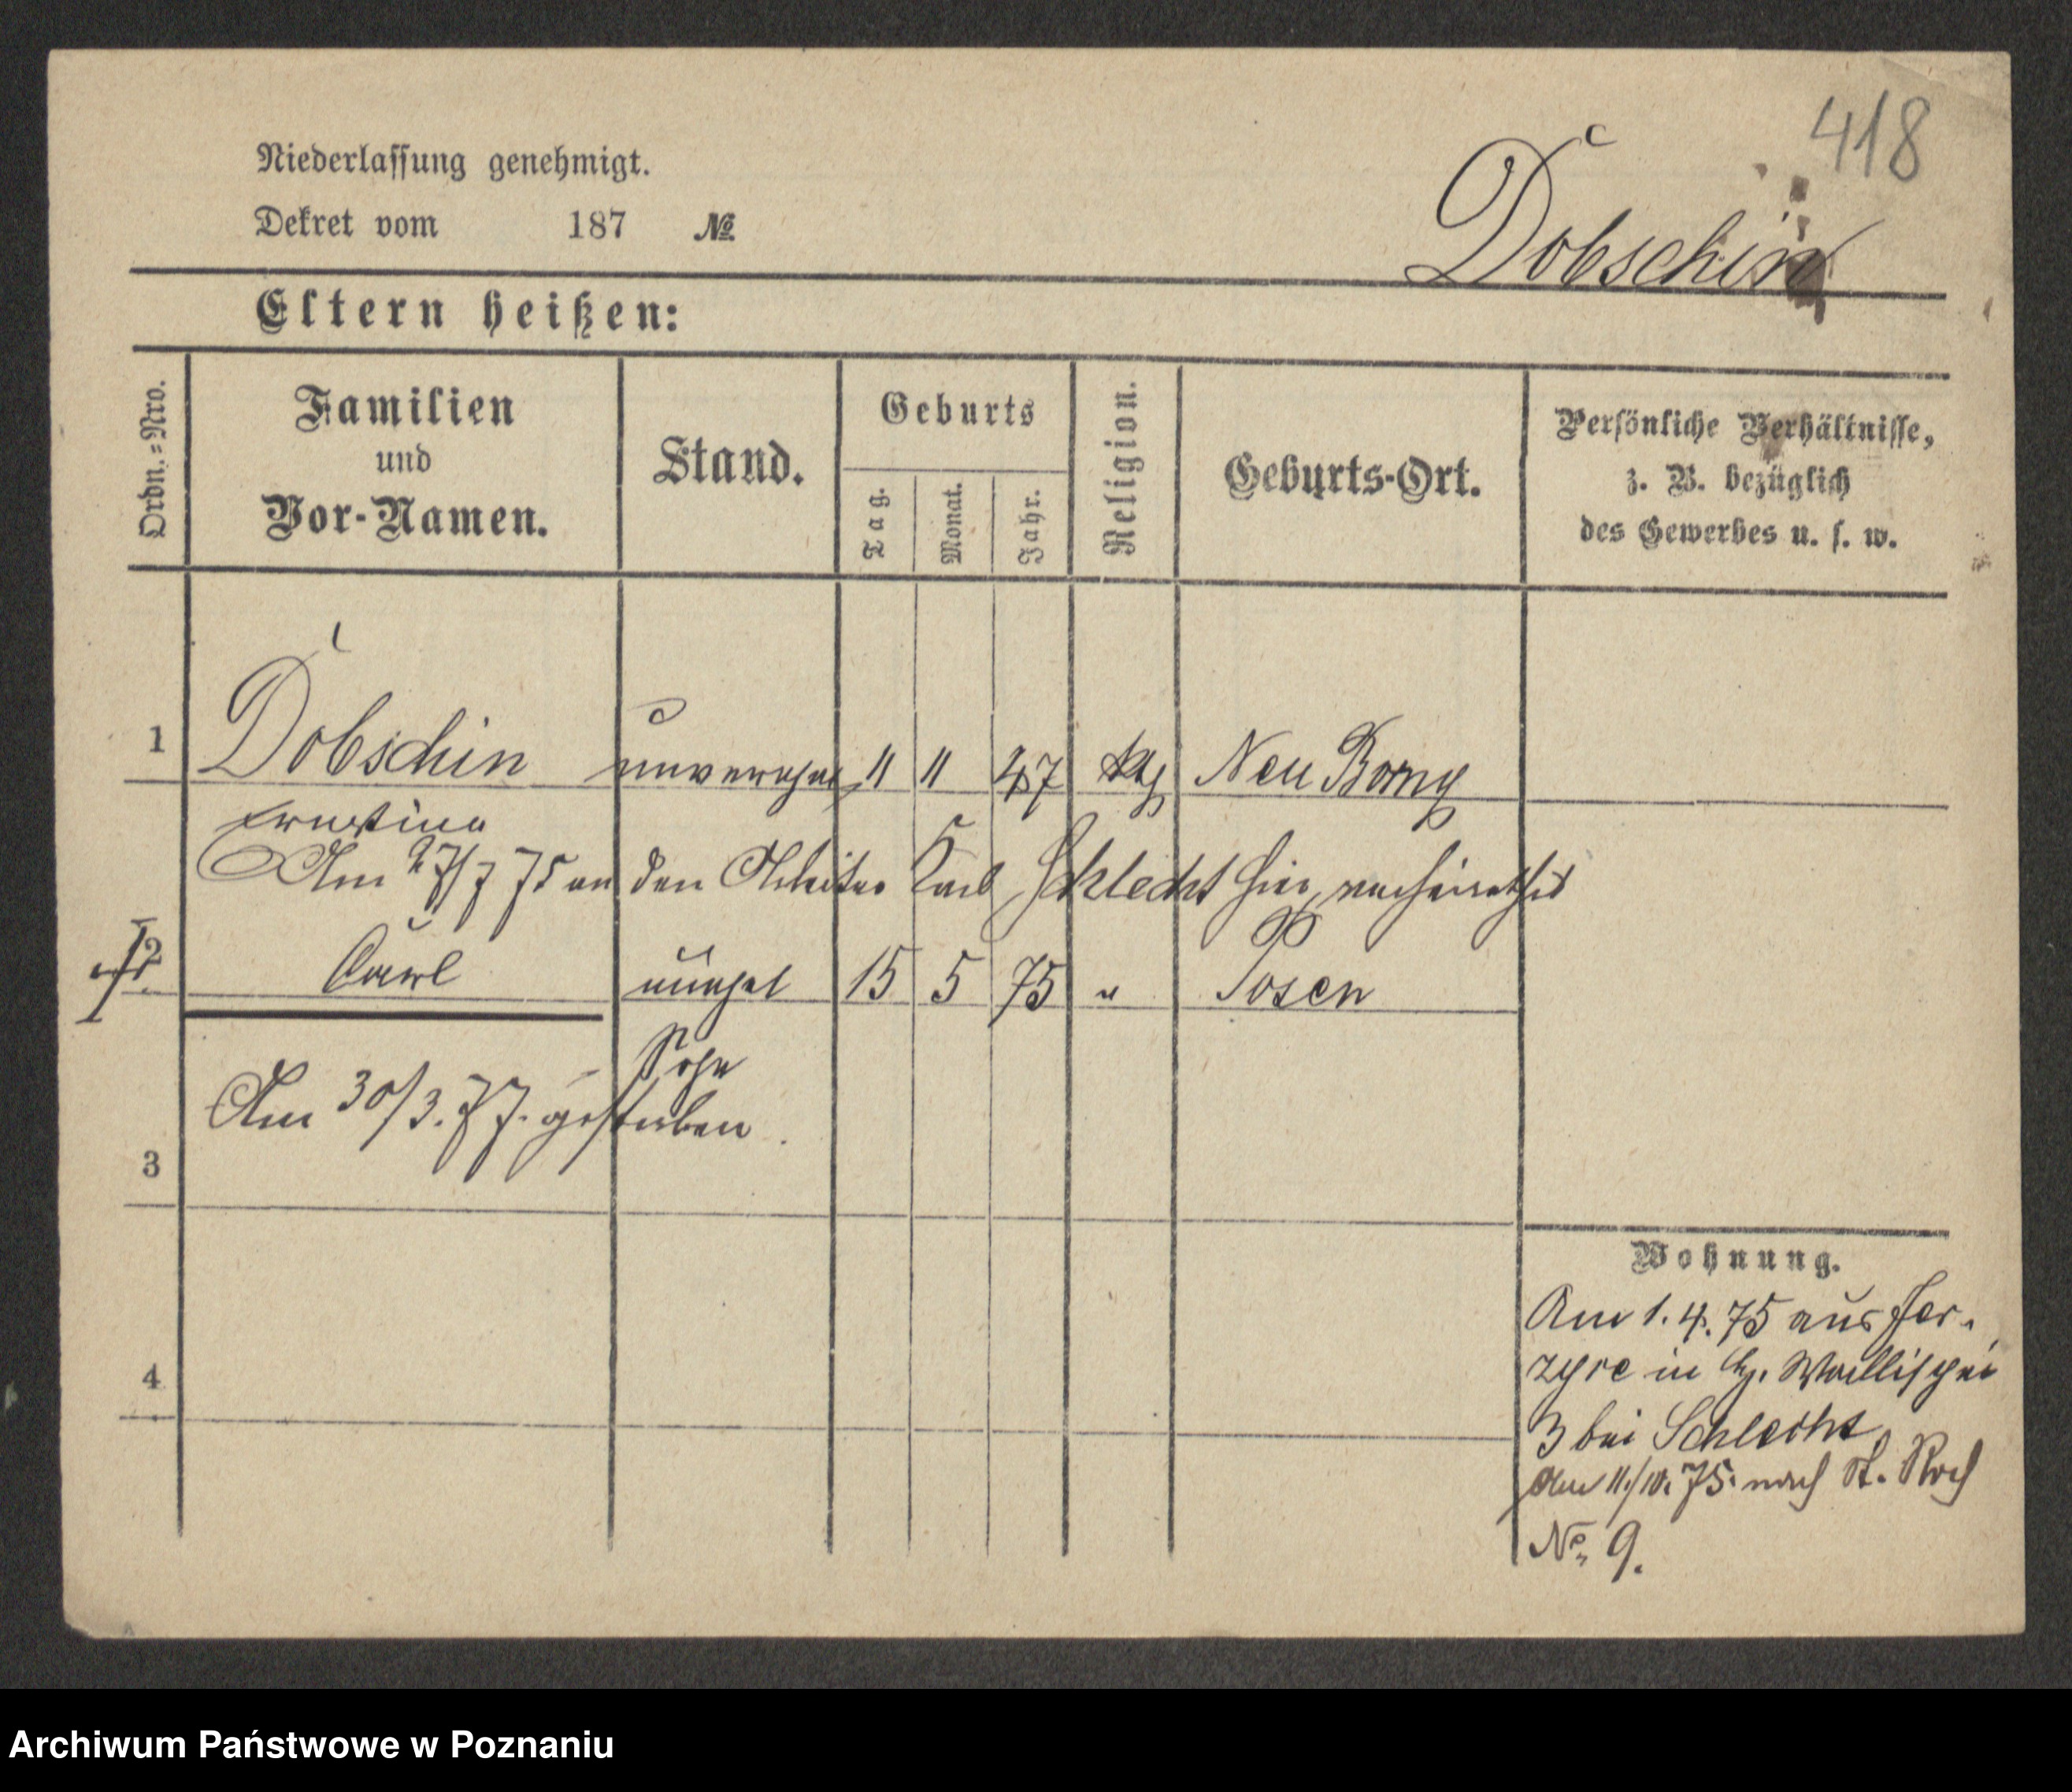 418
Niederlassung genehmigt.
Dekret vom 187 №
Dobschin
Eltern heißen:
Ordn.=Nro.
Familien
und
Vor-Namen.
Stand.
Geburts
Tag.
Monat.
Jahr.
Religion.
Geburts-Ort.
Persönliche Verhältnisse,
z. B. bezüglich
des Gewerbes u. s. w.
1 Dobschin unverehel 11 11 47 Neu
Ernestine
Am 27/7 75 an den Arbeiter Carl Schlecht hier verheirathet
2 Carl unehel 15 5 75 " Posen
Sohn
Am 30/3. 77. gestorben.
3
4
Wohnung.
Am 1. 4. 75 aus Jer-
zyce in Wallischei
3 bei Schlecht
Am 11./10. 75. nach St. Roch
No. 9.
Archiwum Państwowe w Poznaniu